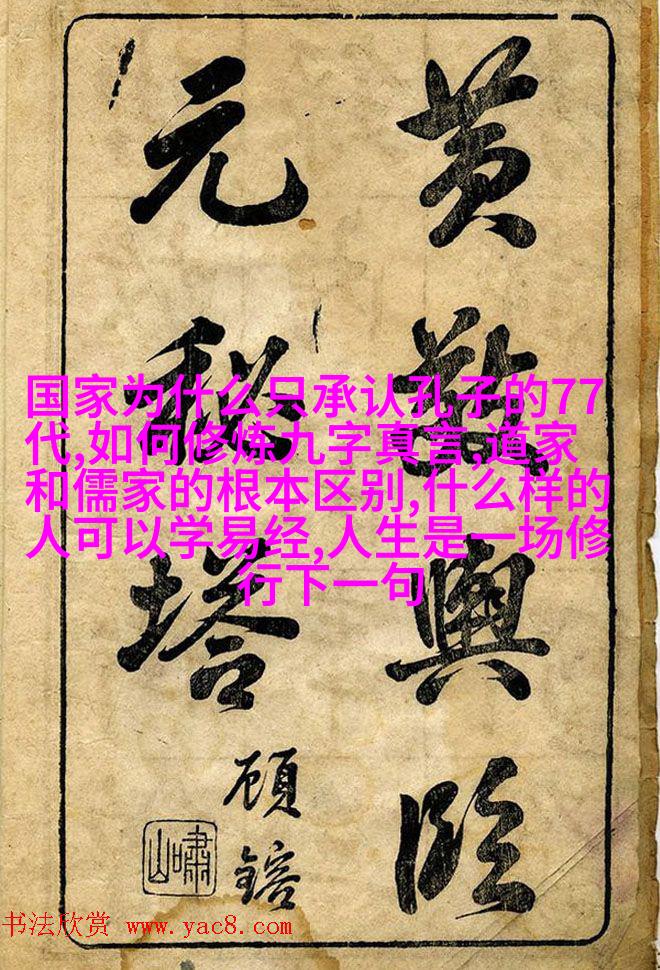 黄敬輿臨
元秘塔
顾鎔
嘯山
国家为什么只承认孔子的77
代,如何修炼九字真言,道家
和儒家的根本区别,什么样的
人可以学易经,人生是一场修
行下一句
书法欣赏 www.yac8.com